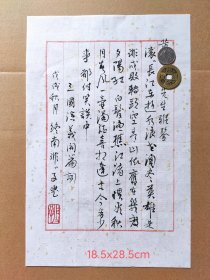 先生雅鉴
滚长江东逝水浪花淘尽英雄是
非成败转头空青山依旧在几度
夕阳红白发渔樵江渚上惯看秋
月春风一壶浊酒喜相逢古今多少
事都付笑谈中
三国演义开篇词
戊戌 月终南
18.5x28.5cm